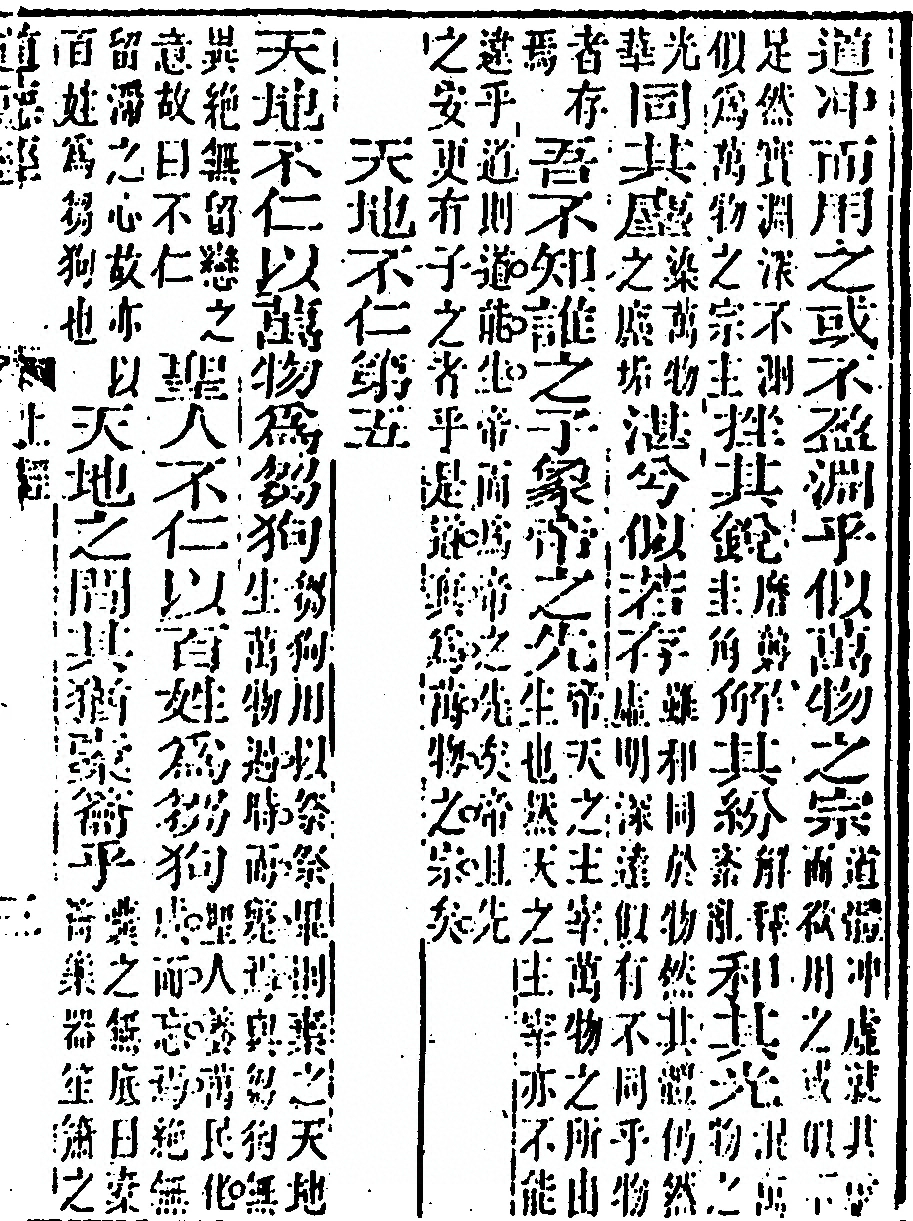 道冲而用之或不盈淵乎似萬物之宗
道體冲虛就其
而欲用之或似不
足然實淵深不測
似為萬物之宗主
挫其銳
磨剪
圭角
解其紛
解釋
紊亂
和其光
混萬
物之
光
華
同其塵
染萬物
之塵垢
湛兮似若存
雖和同於物然其體仍然
虛明深遠似有不同乎物
者存
焉
吾不知誰之子象帝之先
帝天之主宰萬物之所由
生也然天之主宰亦不能
違乎道則道能生帝而為帝之先矣帝且先
之安更有子之者乎是道與為萬物之宗矣
天地不仁第五
天地不仁以萬物為芻狗
芻狗用以祭祭畢則棄之天地
生萬物過時而焉與芻狗無
異絶無留戀之
意故曰不仁
聖人不仁以百姓為芻狗
聖人養萬民化
而忘焉絶無
留滯之心故亦以
百姓為芻狗也
天地之間其猶橐籥乎
之無底曰橐
籥樂器笙簫之
道德經
上經
三